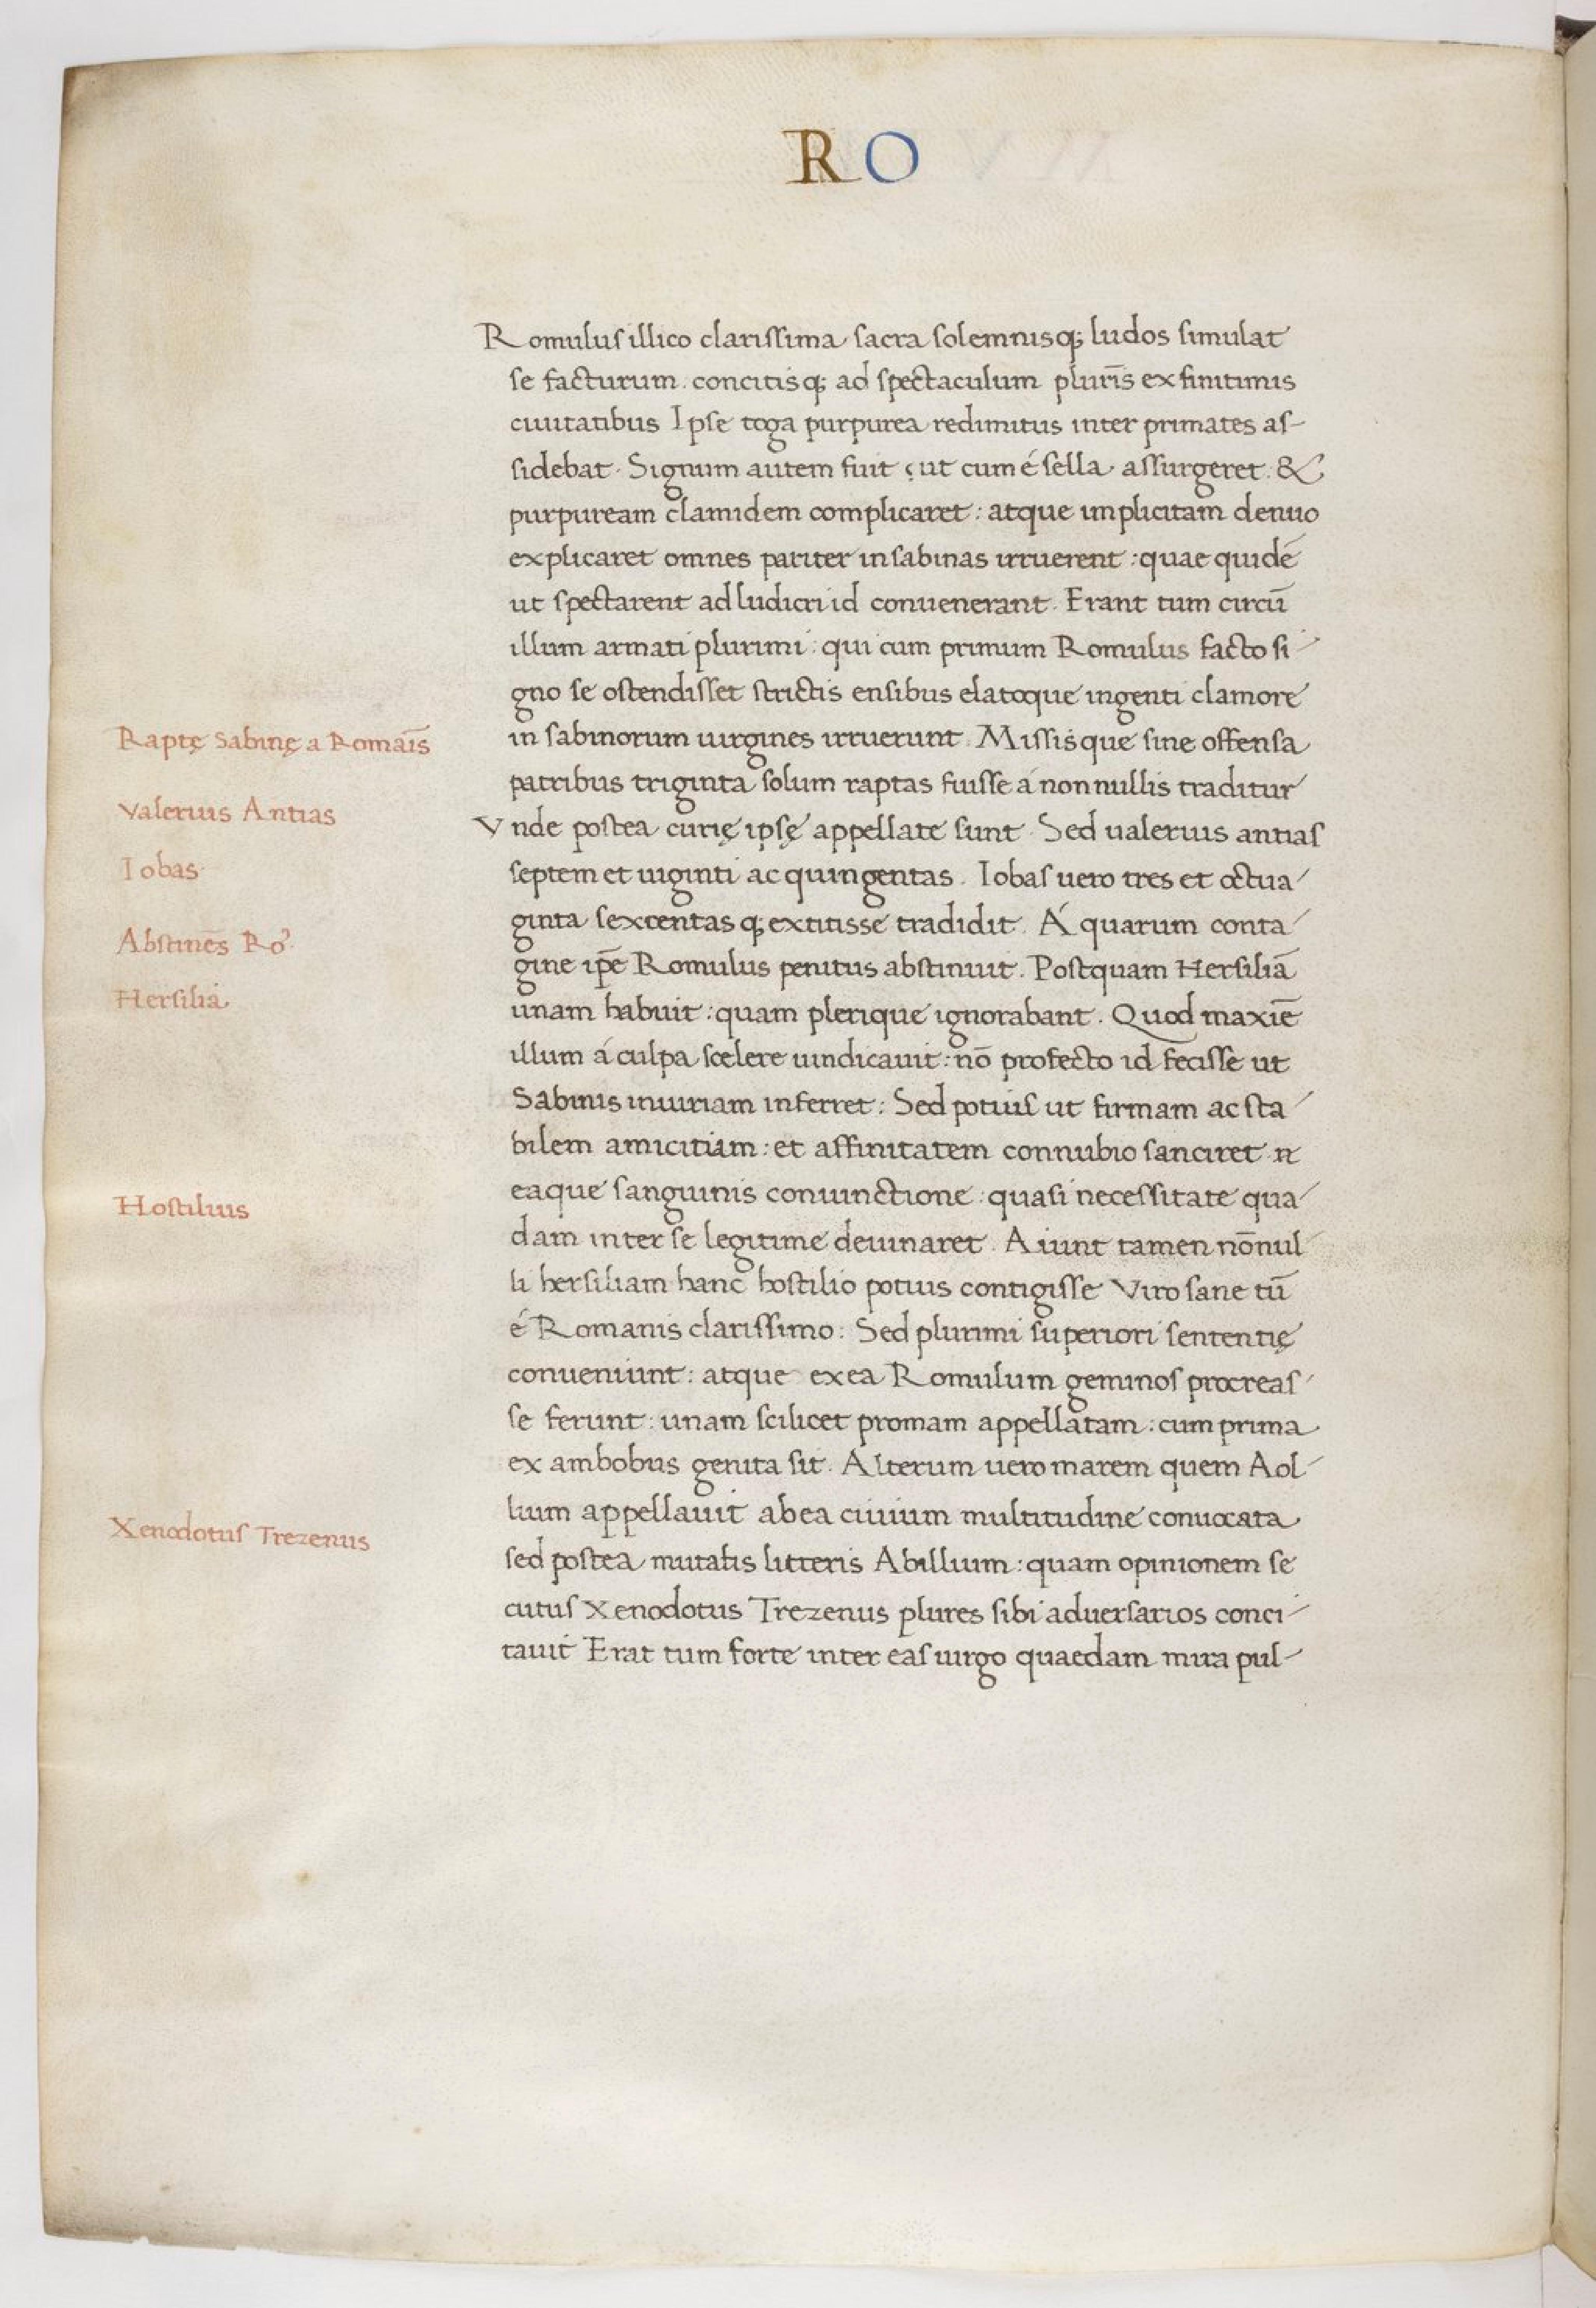 RO
Romulus illico clarissima sacra solemnisq; ludos simulat
se facturum. concitisq; ad spectaculum plurīs ex finitimis
ciuitatibus Ipse toga purpurea redimitus inter primates as-
sidebat. Signum autem fuit ut cum é sella assurgeret. &
purpuream clamidem complicaret: atque implicitam denuo
explicaret omnes pariter in sabinas irruerent: quae quidē
ut spectarent ad ludicri id conuenerant. Erant tum circū
illum armati plurimi: qui cum primum Romulus facto si-
gno se ostendisset strictis ensibus elatoque ingenti clamore
Raptę Sabinę a Romaīs
in sabinorum uirgines irruerunt. Missisque sine offensa
patribus triginta solum raptas fuisse á nonnullis traditur
Valerius Antias
Vnde postea curię ipsę appellate sunt. Sed ualerius antias
Iobas
septem et uiginti ac quingentas. Iobas uero tres et octua-
ginta sexcentasq; extitisse tradidit. Á quarum conta-
Abstinēs Ro⁹
gine ip̄e Romulus penitus abstinuit. Postquam Hersiliā
Hersilia
unam habuit: quam plerique ignorabant. Quod maxīe
illum á culpa scelere uindicauit: nō profecto id fecisse ut
Sabinis iniuriam inferret: Sed potius ut firmam ac sta-
bilem amicitiam: et affinitatem connubio sanciret
eaque sanguinis coniunctione: quasi necessitate qua-
Hostilius
dam inter se legitime deuinaret. Aiunt tamen nōnul-
li hersiliam hanc hostilio potius contigisse Viro sane tū
é Romanis clarissimo: Sed plurimi superiori sententię
conueniunt: atque ex ea Romulum geminos procreas-
se ferunt: unam scilicet promam appellatam: cum prima
ex ambobus genita sit. Alterum uero marem quem Aol-
lium appellauit ab ea ciuium multitudine conuocata
Xenodotus Trezenus
sed postea mutatis litteris Abillium: quam opinionem se
cutus Xenodotus Trezenus plures sibi aduersarios conci-
tauit Erat tum forte inter eas uirgo quaedam mira pul-